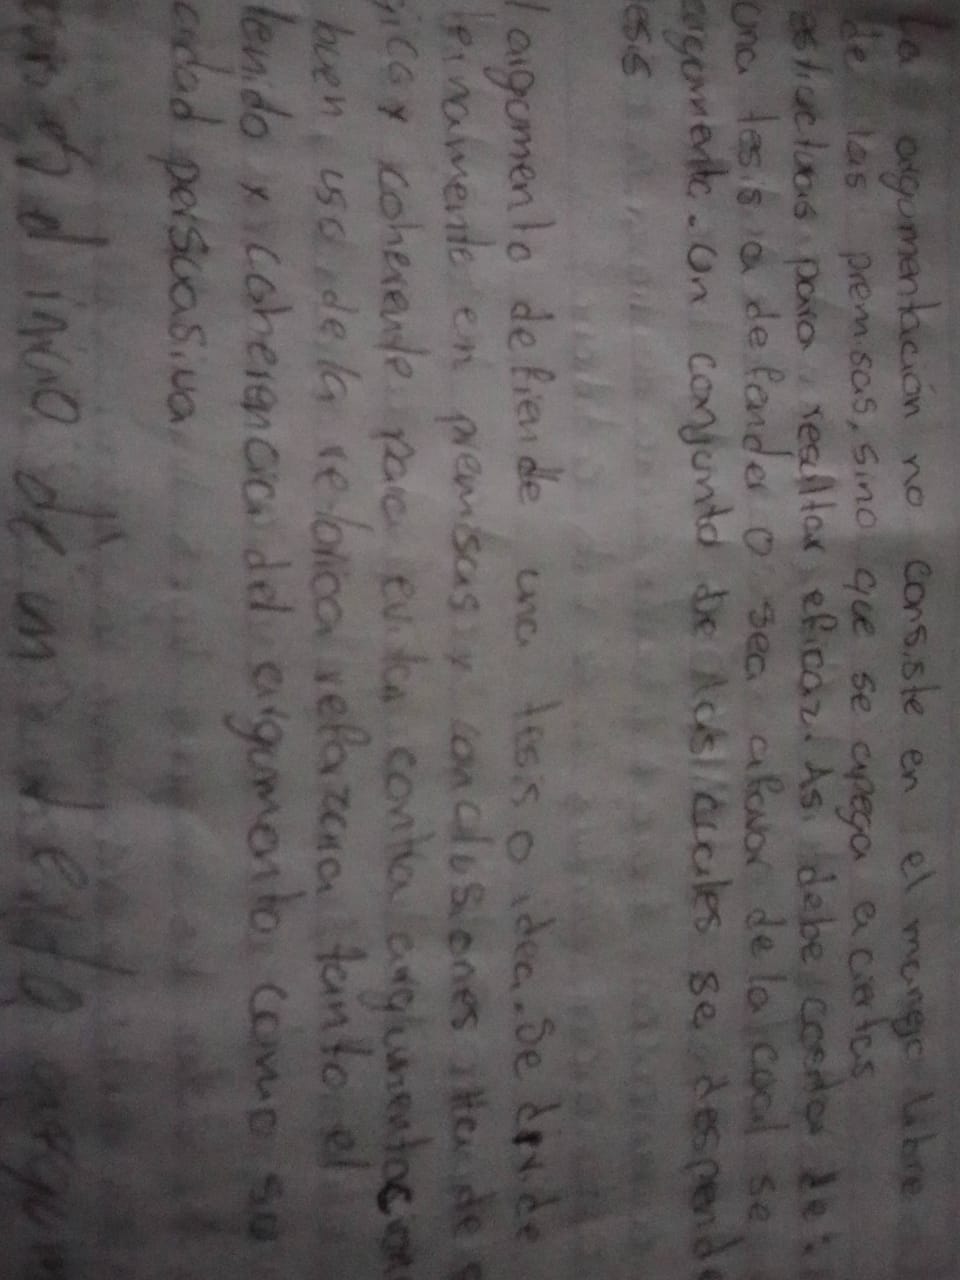 La argumentación no consiste en el manejo libre
de las premisas, sino que se apega a ciertas
estructuras para resultar eficaz. Asi debe costar de:
una tesis a defender o sea afavor de la cual se
argumenta. un conjunto de de las cuales se desprend
esis
l argumento defiende una tesis o idea. Se divide
ternamente en premisas y conclusiones Ha de s
gica y coherente para evitar contra argumentacion
buen uso de la retorica reforzara tanto el
tenido y coherencia del argumento como su
cidad persuasiva